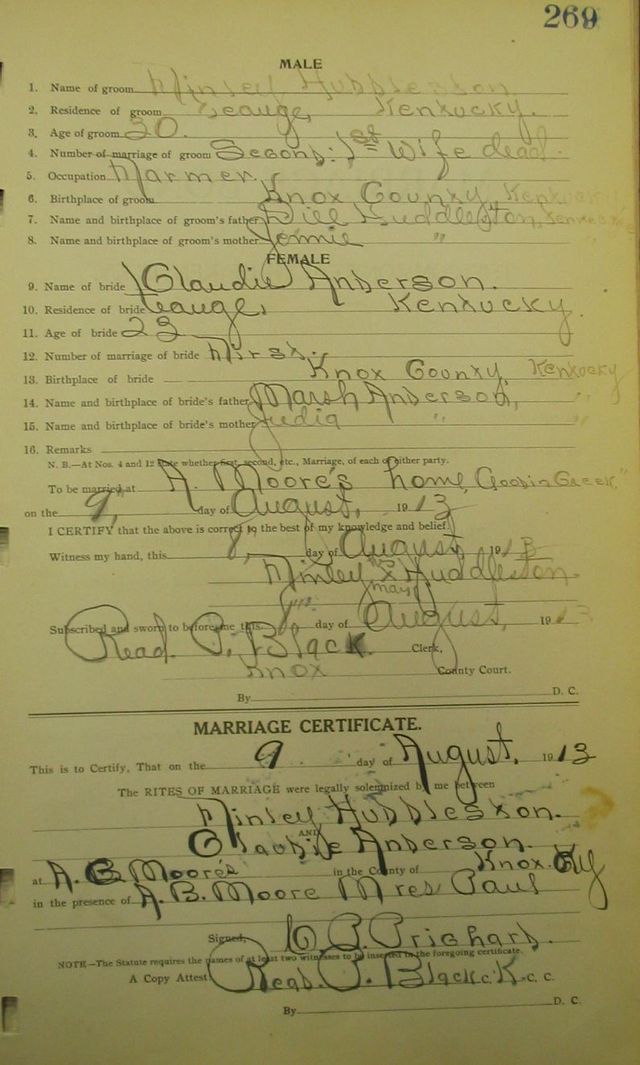 269
MALE
1. Name of groom Finley Huddleston
2. Residence of groom Kentucky.
3. Age of groom 30.
4. Number of marriage of groom Second: 1st Wife dead.
5. Occupation Farmer
6. Birthplace of groom Knox County, Kentucky
7. Name and birthplace of groom's father Will Huddleston, Kentucky
8. Name and birthplace of groom's mother Jennie "
FEMALE
9. Name of bride Claudie Anderson.
10. Residence of bride Kentucky
11. Age of bride 23
12. Number of marriage of bride First.
13. Birthplace of bride Knox County, Kentucky
14. Name and birthplace of bride's father Marsh Anderson, "
15. Name and birthplace of bride's mother " "
16. Remarks
N. B.—At Nos. 4 and 12 state whether first, second, etc., Marriage, of each of either party.
To be married at A. Moore's home,
on the 9, day of August, 1913
I CERTIFY that the above is correct to the best of my knowledge and belief.
Witness my hand, this 8, day of August, 1913
Finley his X mark Huddleston.
Subscribed and sworn to before me this day of August, 1913
Read. P. Black Clerk,
Knox County Court.
By D. C.
MARRIAGE CERTIFICATE.
This is to Certify, That on the 9 day of August, 1913
The RITES OF MARRIAGE were legally solemnized by me between
Finley Huddleston.
AND
Claudie Anderson.
at A. B. Moore's in the County of Knox. Ky
in the presence of A. B. Moore Mres Paul
Signed, Prichard.
NOTE—The Statute requires the names of at least two witnesses to be inserted in the foregoing certificate.
A Copy Attest Read. P. Black C. K. C. C.
By D. C.